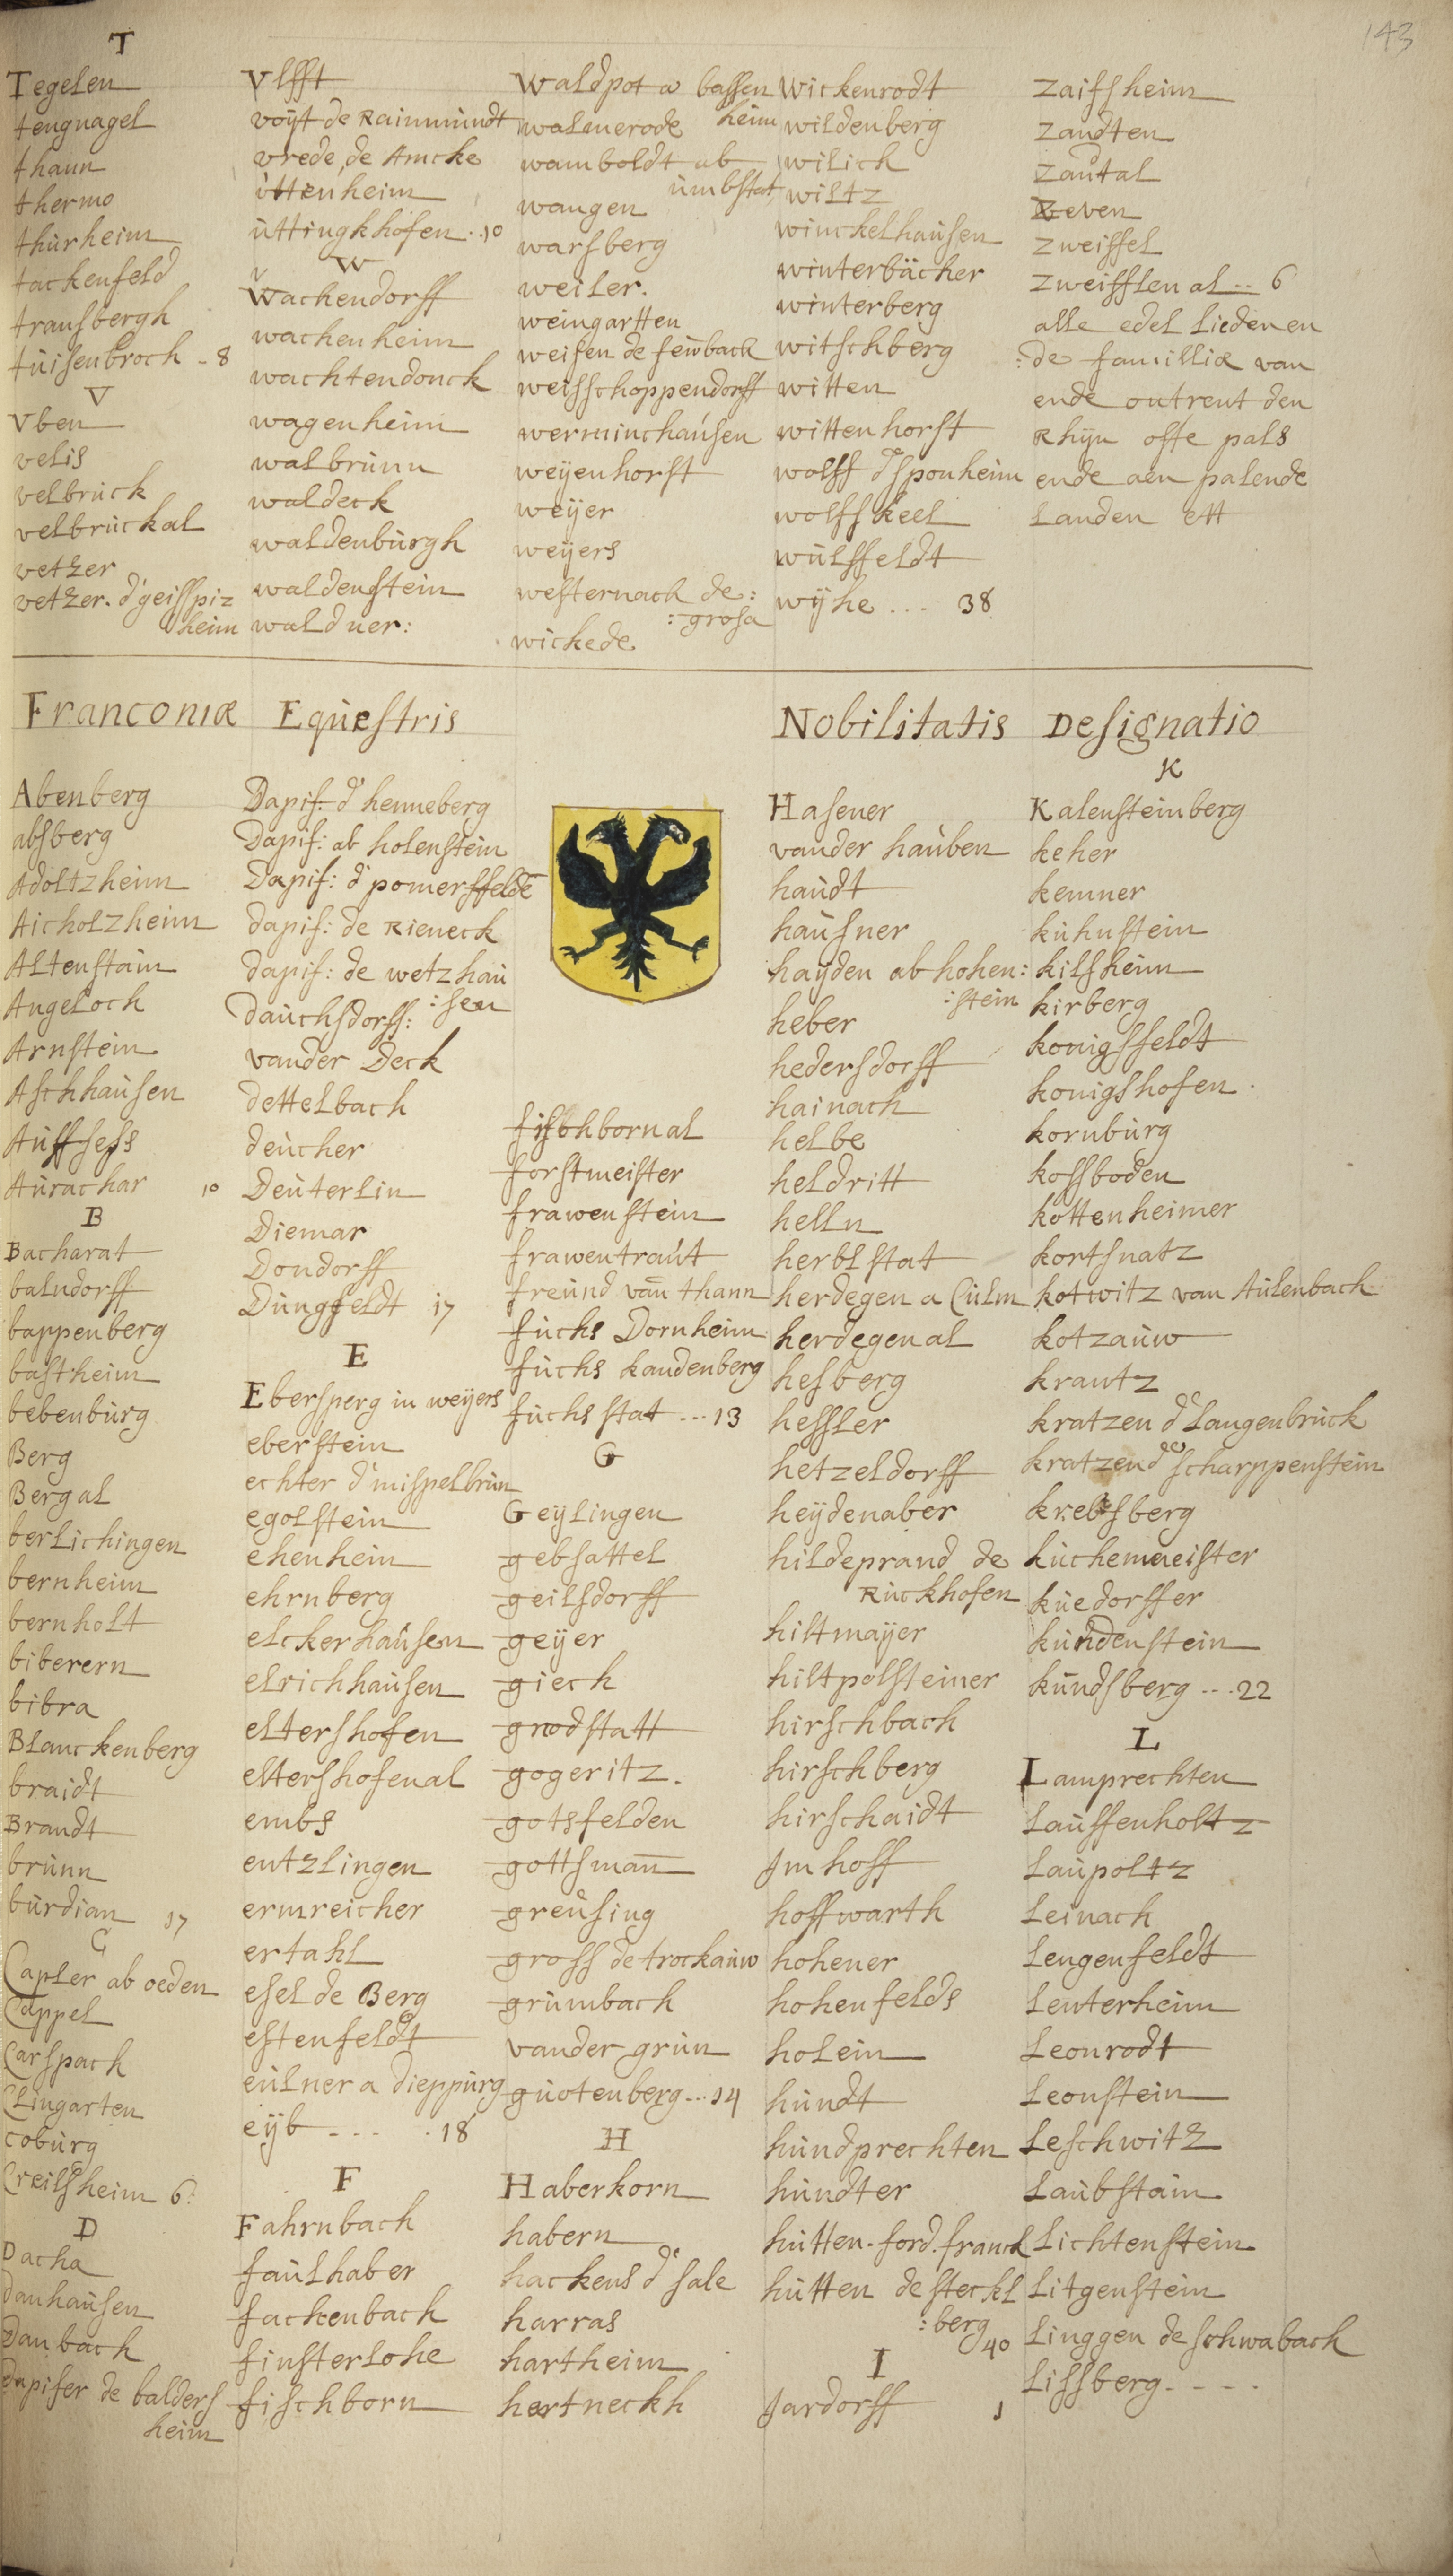 143
T
Tegelen
tengnagel
thann
thermo
thùrheim
tackenfeld
transbergh
tùisenbroch - 8
V
Vben
velis
velbrùck
velbrùckal
vetzer
vetzer. d'geispiz
heim
Vlfft
voijt de Rainmùndt
vrede, de Amcke
ùttenheim
ùttingkhofen . . 10
W
Wachendorff
wachenheim
wachtendonck
wagenheim
walbrùnn
waldeck
waldenbùrgh
waldenstein
waldner:
Waldpot a bassen
heim
walmerode
wamboldt ab
ùmbstat
wangen
warsberg
weiler.
weingartten
weisen de feùback
weisschoppendorff
werminchaùsen
weijenhorst
weijer
weijers
westernach de:
:grosa
wickede
Wickenrodt
wildenberg
wilich
wiltz
winckelhaùsen
winterbächer
winterberg
witschberg
witten
wittenhorst
wolff de sponheim
wolfskeel
wùlffeldt
wijhe . . . 38
Zaissheim
Zandten
Zaùtal
Zeven
Zweiffel
Zweifflen al .. 6
alle edel Liedenen
:de familliæ van
ende outrent den
Rhijn offe pals
ende aen palende
Landen ett
Franconiæ Eqùestris Nobilitatis Designatio
Abenberg
absberg
Adoltzheim
Aicholzheim
Altenstain
Angeloch
Arnstein
Aschhaùsen
Aùffsess
Aùrachar 10
B
Bacharat
balndorff
bappenberg
bastheim
bebenbùrg
Berg
Bergal
berlichingen
bernheim
bernholt
biberern
bibra
Blanckenberg
braidt
Brandt
brùnn
bùrdian 17
C
Capler ab oeden
Cappel
Carspach
Clingarten
cobùrg
Creilsheim 6:
D
Dacha
Danhaùsen
Danbach
Dapifer de balders
heim
Dapif: d' henneberg
Dapif: ab holenstein
Dapif: d' pomersfelde
dapif: de Rieneck
dapif: de wetzhaù
:sen
daùchsdorff:
vander Deck
dettelbach
deùcher
Deùterlin
Diemar
Dondorff
Dùngfeldt 17
E
Ebersperg in weijers
eberstein
echter d' mispelbrùn
egolstein
ehenheim
ehrnberg
elckerhaùsen
elrichhaùsen
eltershofen
eltershofenal
embs
entzlingen
ermreicher
ertahl
esel de Berg
estenfeldt
eùlner a dieppùrg
eijb - - - . 18
F
Fahrnbach
faùlhaber
fackenbach
finsterlohe
fischborn
fischbornal
forstmeister
frawenstein
frawentraùt
freùnd van thann
fùchs Dornheim
fùchs kandenberg
fùchsstat ... 13
G
Geijlingen
gebsattel
geilsdorff
geijer
giech
gnodstatt
gogeritz.
gotsfelden
gottsman
greùsing
gross de trockaùw
grùmbach
vander grùn
gùotenberg ... 14
H
Haberkorn
habern
hackens de sale
harras
hartheim
hertneckh
Hasener
vander haùben
haùdt
haùsner
haijden ab hohen:
:stein
heber
hedersdorff
hainach
helbe
heldritt
helln
herblstat
herdegen a Cùlm
herdegenal
hesberg
hessler
hetzeldorff
heijdenaber
hildeprand de
Rùckhofen
hiltmaijer
hiltpolsteiner
hirschbach
hirschberg
hirschaidt
Jmhoff
hoffwarth
hohener
hohenfelds
holein
hùndt
hùndprechten
hùndter
hùtten. ford. franck
hùtten de steckl
:berg 40
I
Jardorff 1
K
Kalensteinberg
keher
kemner
kùhnstein
kilsheim
kirberg
konigsfeldt
konigshofen
kornbùrg
kossboden
kottenheimer
kortsnatz
kotwitz van Aùlenbach
kotzaùw
krantz
kratzen de Langenbrùck
kratzen de scharppenstein
krebsberg
kùchemaeister
kùedorffer
kùndenstein
kùndsberg ... 22
L
Lamprechten
Laùffenholtz
Laùpoltz
Leinach
Lengenfeldt
Lenterheim
Leonrodt
Leonstein
Leschwitz
Laùbstain
Lichtenstein
Litgenstein
Linggen de schwabach
Lissberg - - - -